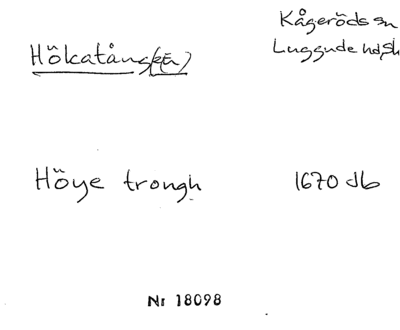 Kågeröds sn
Luggude hd, Sk
Hökatång(en)
Höye trongh
1670 Jb
Nr 18098